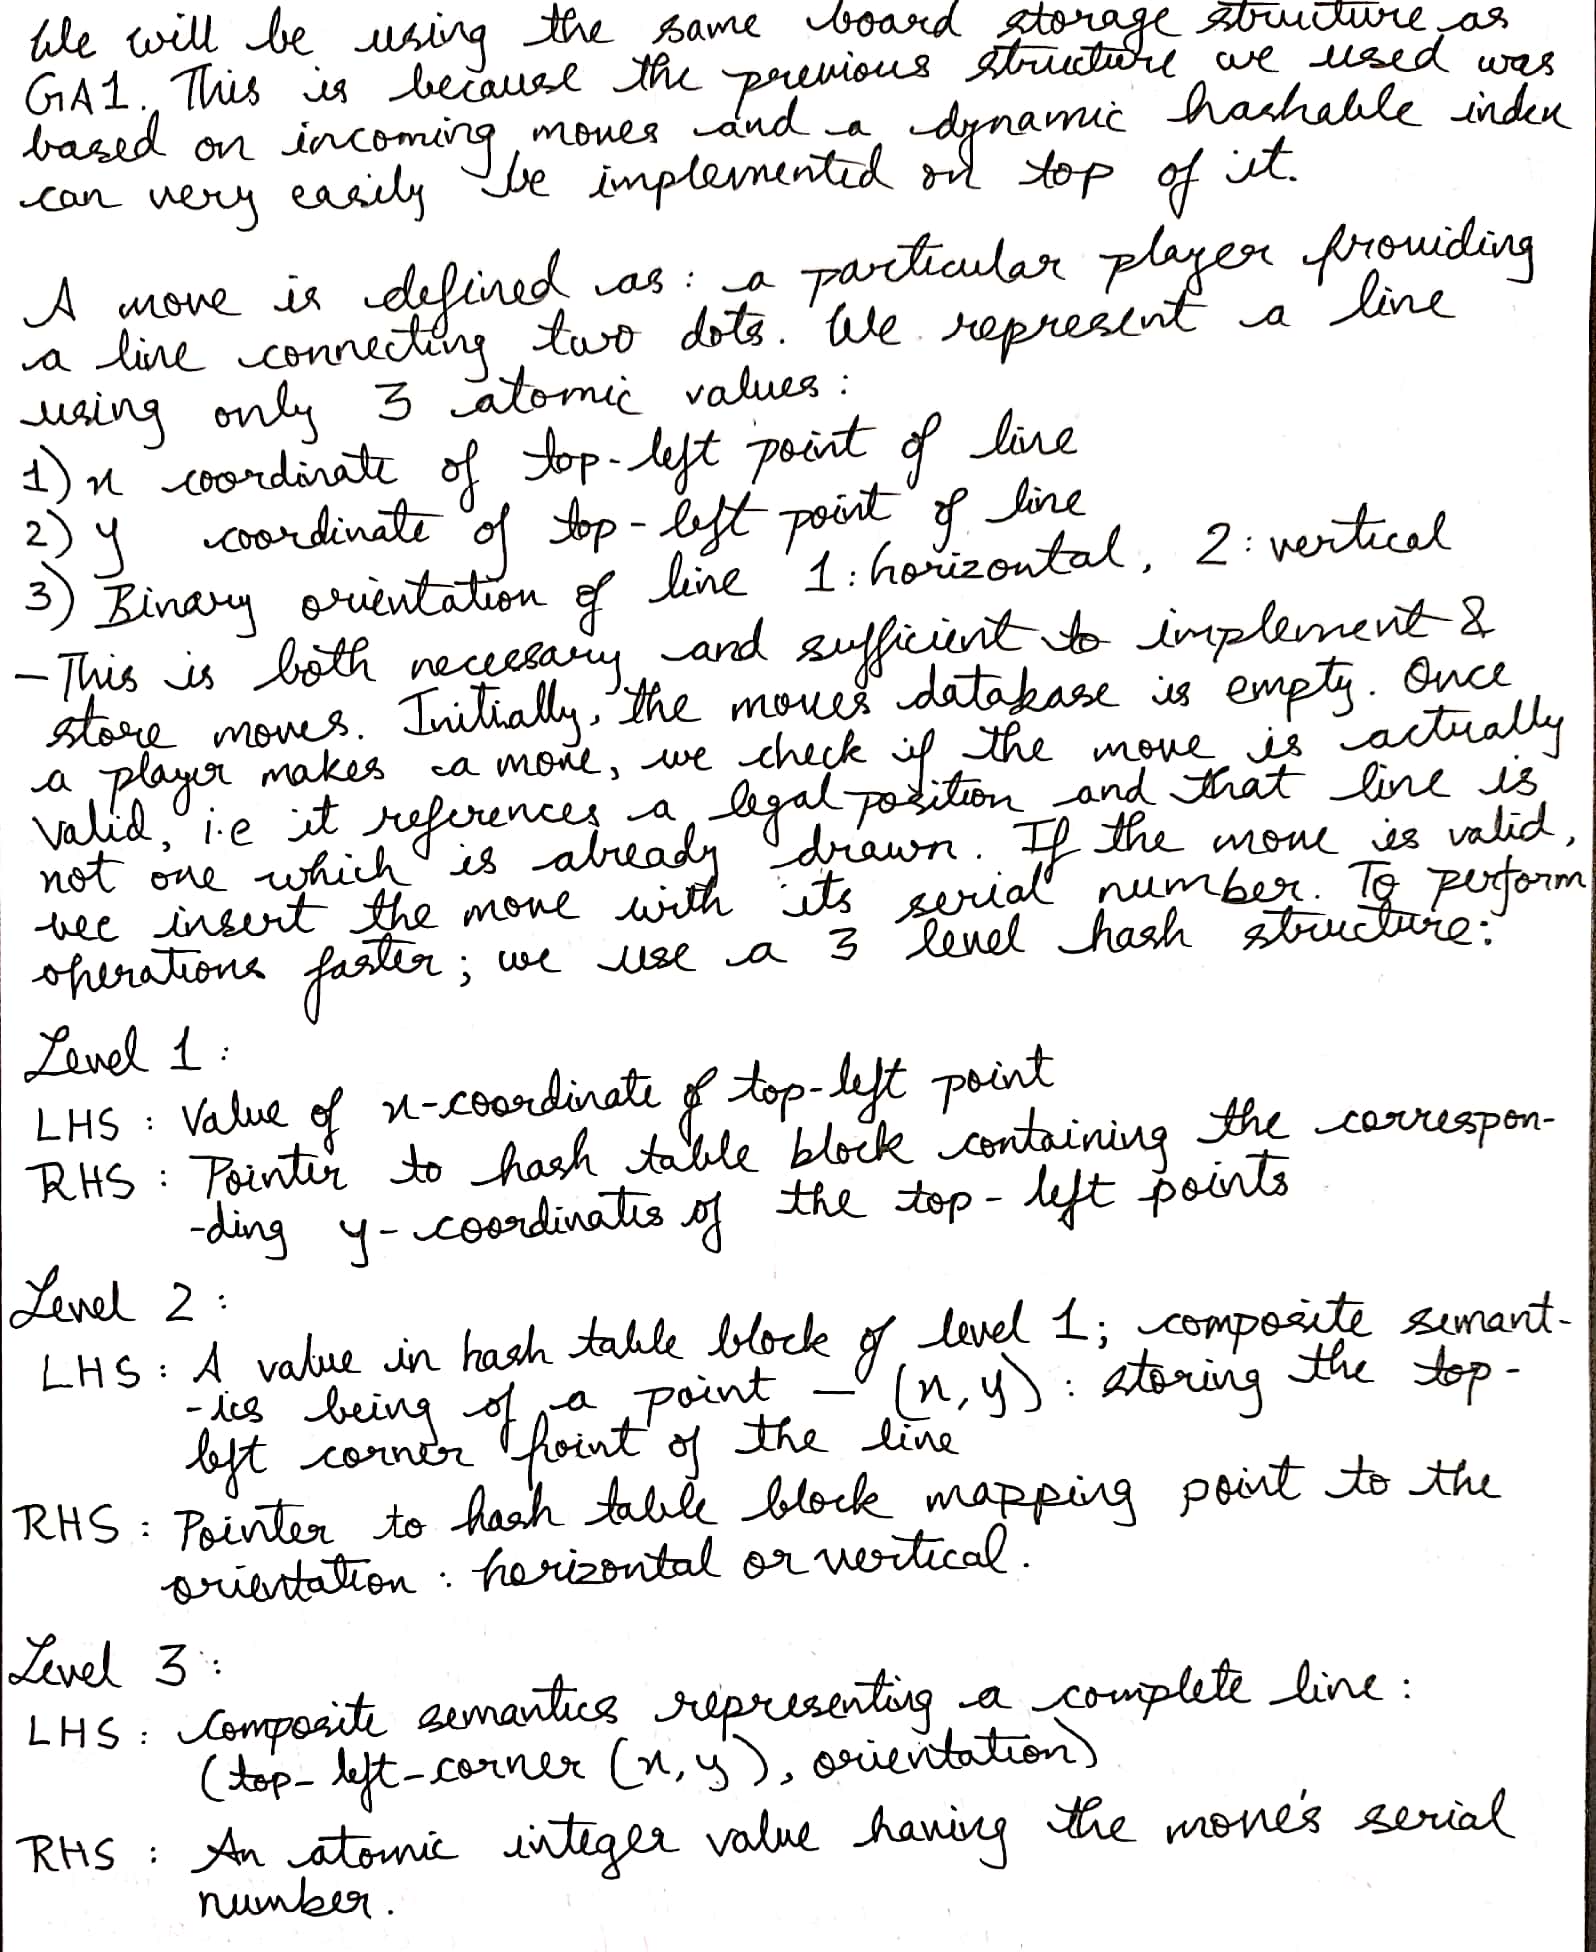 We will be using the same board storage structure as
GA1. This is because the previous structure we used was
based on incoming moves and a dynamic hashable index
can very easily be implemented on top of it.
A move is defined as: a particular player providing
a line connecting two dots. We represent a line
using only 3 atomic values:
1) x coordinate of top-left point of line
2) y coordinate of top-left point of line
3) Binary orientation of line 1: horizontal, 2: vertical
- This is both necessary and sufficient to implement &
store moves. Initially, the moves database is empty. Once
a player makes a move, we check if the move is actually
valid, i.e it references a legal position and that line is
not one which is already drawn. If the move is valid,
we insert the move with its serial number. To perform
operations faster; we use a 3 level hash structure:
Level 1:
LHS: Value of x-coordinate of top-left point
RHS: Pointer to hash table block containing the correspon-
-ding y-coordinates of the top-left points
Level 2:
LHS: A value in hash table block of level 1; composite semant-
-ics being of a point - (x, y): storing the top-
left corner point of the line
RHS: Pointer to hash table block mapping point to the
orientation: horizontal or vertical.
Level 3:
LHS: Composite semantics representing a complete line:
(top-left-corner (x, y), orientation)
RHS: An atomic integer value having the move's serial
number.